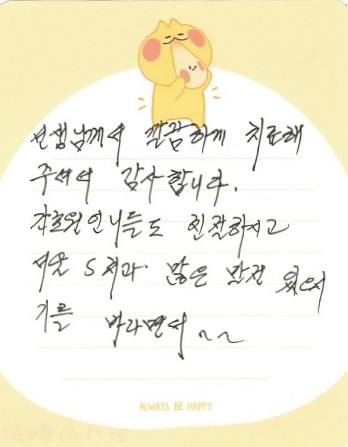 선생님께서 깔끔하게 치료해
주셔서 감사합니다.
간호원 언니들도 친절하시고
서울 S 치과 많은 발전 있으시
기를 바라면서 ~~
ALWAYS BE HAPPY